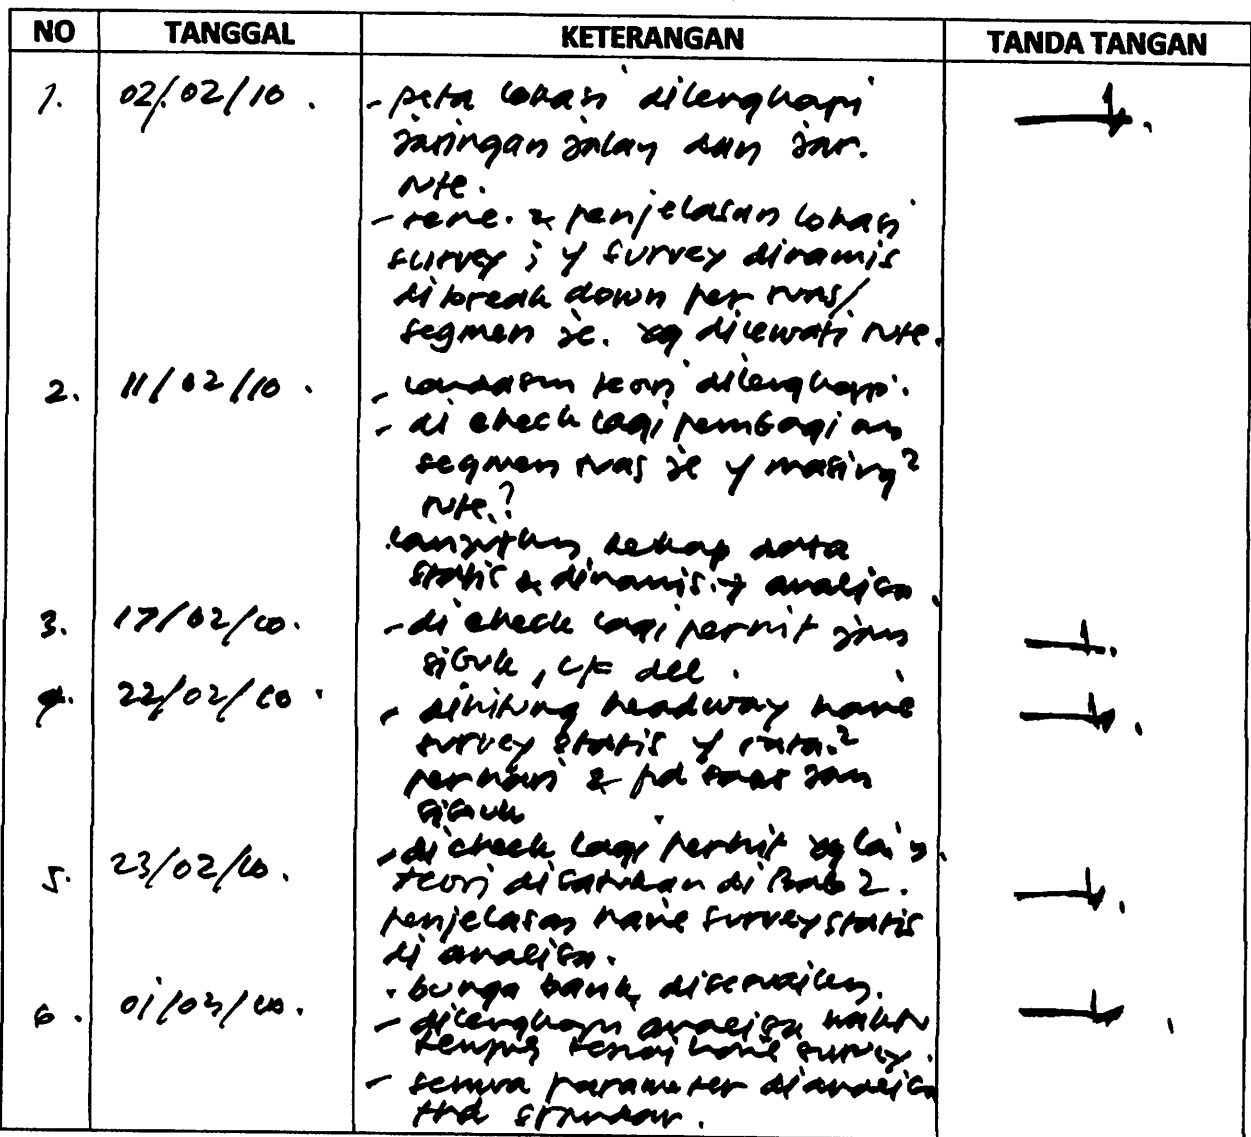 NO TANGGAL KETERANGAN TANDA TANGAN
1. 02/02/10. - peta lokasi dilengkapi
jaringan jalan dan jar.
rute.
- renc. & penjelasan lokasi
survey ; y survey dinamis
di break down per ruas/
segmen jl. yg dilewati rute.
2. 11/02/10. - landasan teori dilengkapi.
- di check lagi pembagian
segmen ruas jl y masing2
rute.?
lanjutkan rekap data
statis & dinamis. → analisa.
3. 17/02/10. - di check lagi perhit jam
sibuk, LF dll.
4. 22/02/10. - dihitung headway hasil
survey statis y rata.2
per hari & pd saat jam
sibuk
5. 23/02/10. - di check lagi perhit yg lain.
teori disatukan di Bab 2.
penjelasan hasil survey statis
di analisa.
- bunga bank disesuaikan.
6. 01/03/10. - dilengkapi analisa waktu
tempuh sesuai hasil survey.
- semua parameter dianalisa
thd standar.